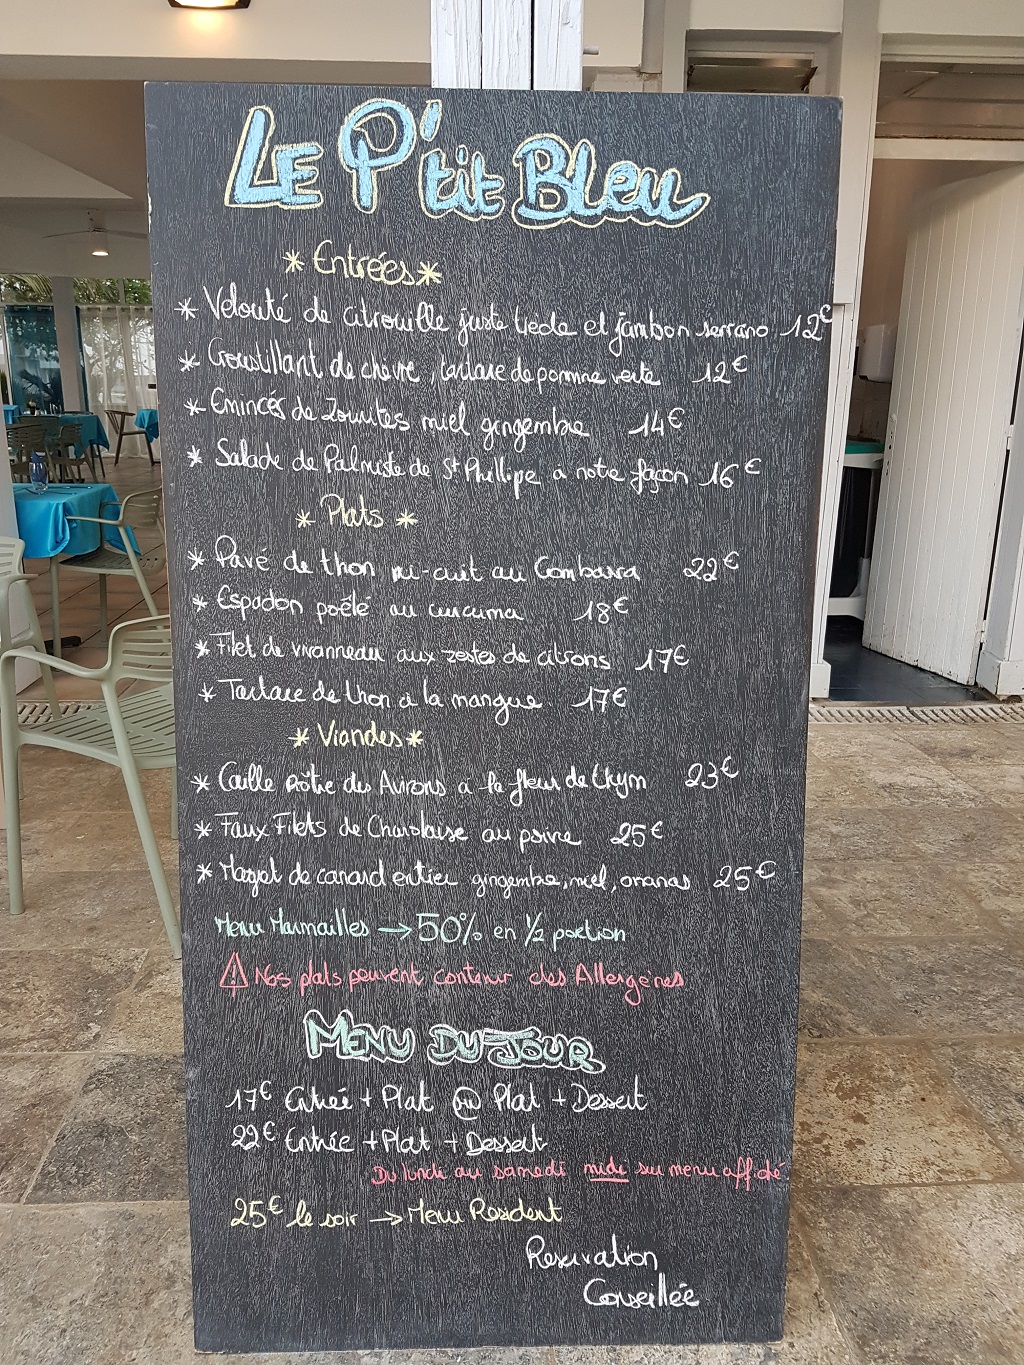 LE P'tit Bleu
* Entrées *
* Velouté de citrouille juste tiede et jambon serrano 12€
* Croustillant de chèvre, tartare de pomme verte 12€
* Emincés de Zourites miel gingembre 14€
* Salade de Palmiste de St Phillipe à notre façon 16€
* Plats *
* Pavé de thon mi-cuit au Combava 22€
* Espadon poêlé au curcuma 18€
* Filet de vivanneau aux zestes de citrons 17€
* Tartare de thon à la mangue 17€
* Viandes *
* Caille rôtie des Avirons à la fleur de thym 23€
* Faux Filets de Charolaise au poivre 25€
* Magret de canard entier gingembre, miel, ananas 25€
Menu Marmailles → 50% en 1/2 portion
⚠ Nos plats peuvent contenir des Allergènes
MENU DU JOUR
17€ Entrée + Plat ou Plat + Dessert
22€ Entrée + Plat + Dessert
Du lundi au samedi midi sur menu affiché
25€ le soir → Menu Resident
Reservation
Conseillée